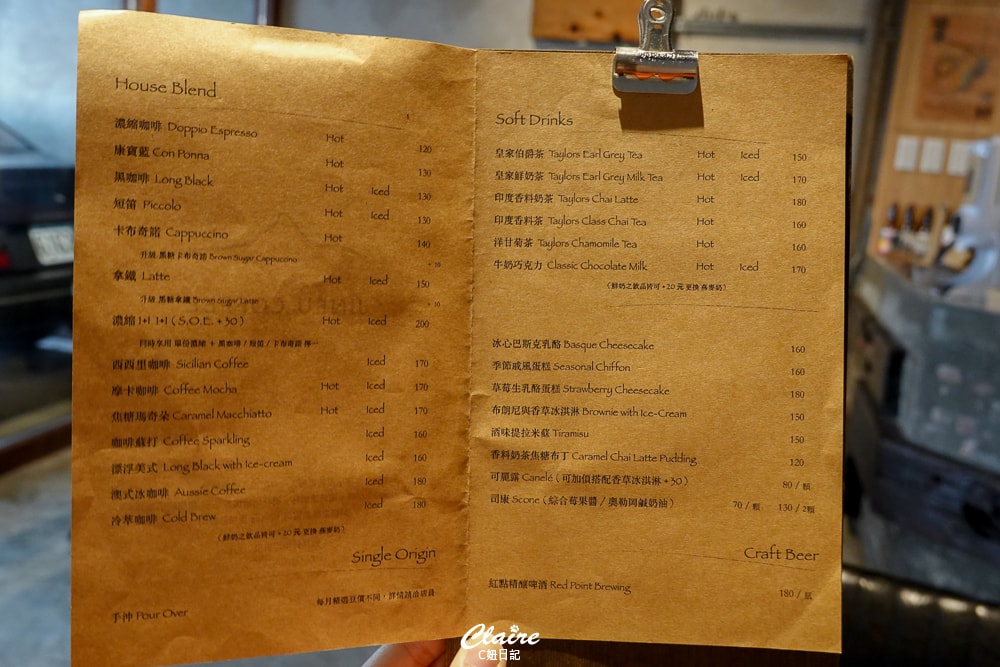 House Blend
$
濃縮咖啡 Doppio Espresso Hot 120
康寶藍 Con Ponna Hot 130
黑咖啡 Long Black Hot Iced 130
短笛 Piccolo Hot Iced 130
卡布奇諾 Cappuccino Hot 140
升級 黑糖卡布奇諾 Brown Sugar Cappuccino + 10
拿鐵 Latte Hot Iced 150
升級 黑糖拿鐵 Brown Sugar Latte + 10
濃縮 1+1 1+1 ( S.O.E. + 30 ) Hot Iced 200
同時享用 單份濃縮 + 黑咖啡 / 短笛 / 卡布奇諾 擇一
西西里咖啡 Sicilian Coffee Iced 170
摩卡咖啡 Coffee Mocha Hot Iced 170
焦糖瑪奇朵 Caramel Macchiatto Hot Iced 170
咖啡蘇打 Coffee Sparkling Iced 160
漂浮美式 Long Black with Ice-cream Iced 160
澳式冰咖啡 Aussie Coffee Iced 180
冷萃咖啡 Cold Brew Iced 180
( 鮮奶之飲品皆可 + 20 元 更換 燕麥奶 )
Single Origin
手沖 Pour Over 每月精選豆價不同，詳情請洽店員
Soft Drinks
皇家伯爵茶 Taylors Earl Grey Tea Hot Iced 150
皇家鮮奶茶 Taylors Earl Grey Milk Tea Hot Iced 170
印度香料奶茶 Taylors Chai Latte Hot 180
印度香料茶 Taylors Class Chai Tea Hot 160
洋甘菊茶 Taylors Chamomile Tea Hot 160
牛奶巧克力 Classic Chocolate Milk Hot Iced 170
( 鮮奶之飲品皆可 + 20 元 更換 燕麥奶 )
冰心巴斯克乳酪 Basque Cheesecake 160
季節戚風蛋糕 Seasonal Chiffon 160
草莓生乳酪蛋糕 Strawberry Cheesecake 180
布朗尼與香草冰淇淋 Brownie with Ice-Cream 150
酒味提拉米蘇 Tiramisu 150
香料奶茶焦糖布丁 Caramel Chai Latte Pudding 120
可麗露 Canelé ( 可加價搭配香草冰淇淋 + 50 ) 80 / 顆
司康 Scone ( 綜合莓果醬 / 奧勒岡鹹奶油 ) 70 / 顆 130 / 2顆
Craft Beer
紅點精釀啤酒 Red Point Brewing 180 / 瓶
Claire
C妞日記